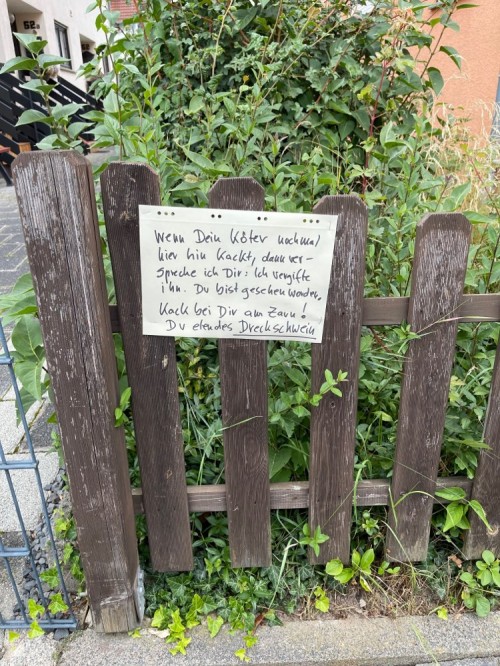 52a
Wenn Dein Köter nochmal
hier hin kackt, dann ver-
spreche ich Dir: Ich vergifte
ihn. Du bist gesehen worden.
Kack bei Dir am Zaun!
Du elendes Dreckschwein